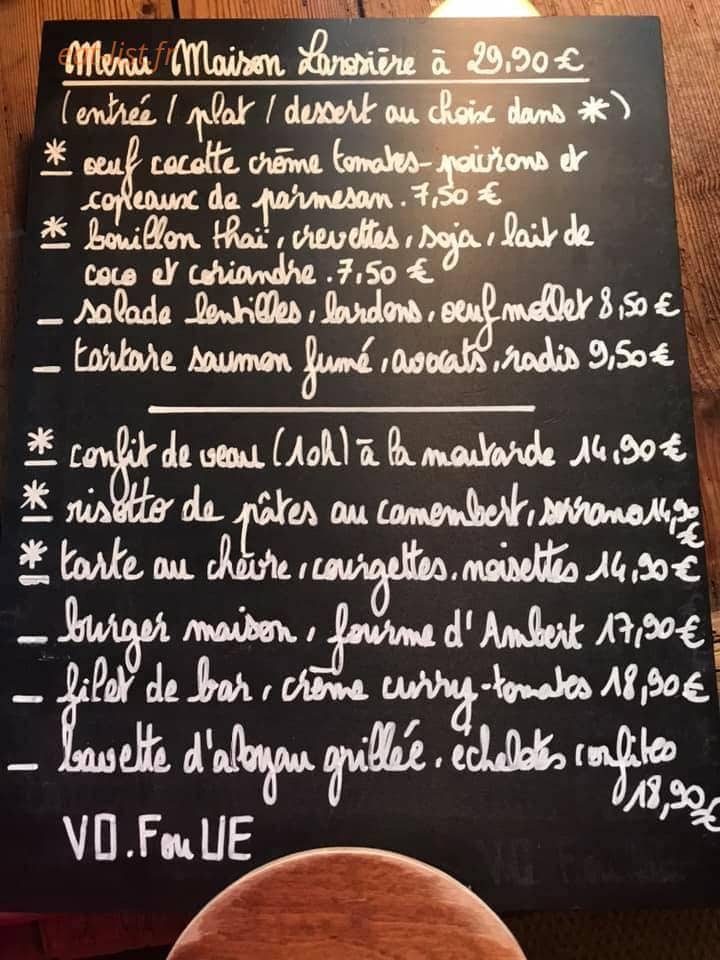 eat-list.fr
Menu Maison Larosière à 29,90 €
(entrée / plat / dessert au choix dans *)
* oeuf cocotte crème tomates-poivrons et
copeaux de parmesan . 7,50 €
* bouillon thaï, crevettes, soja, lait de
coco et coriandre . 7,50 €
_ salade lentilles, lardons, oeuf mollet 8,50 €
_ tartare saumon fumé, avocats, radis 9,50 €
* confit de veau (10h) à la moutarde 14,90 €
* risotto de pâtes au camembert, serrano 14,90
€
* tarte au chèvre, courgettes, noisettes 14,90 €
_ burger maison, fourme d'Ambert 17,90 €
_ filet de bar, crème curry-tomates 18,90 €
_ bavette d'aloyau grillée, échalotes confites
18,90 €
VO. F ou UE